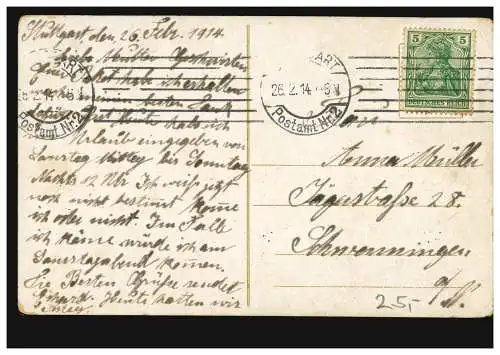 Stuttgart den 26 Febr. 1914
Liebe Mutter Geschwister
Euer Paket hab ich erhalten
meinen besten Dank
dafür. Hab heute
Urlaub eingegeben von
Samstag Mittag bis Sonntag
Nachts 12 Uhr Ich weiß jetzt
noch nicht bestimmt komme
ich oder nicht. Im Falle
ich käme würde ich am
Samstagabend kommen.
Die Besten Grüße sendet
Erhard. Heute hatten wir
26.2.14
Postamt Nr. 2
ART
26.2.14
Postamt Nr. 2
5 5
DEUTSCHES REICH
An
Anna Müller
Jägerstraße 28.
Schwenningen
a/N.
25,-